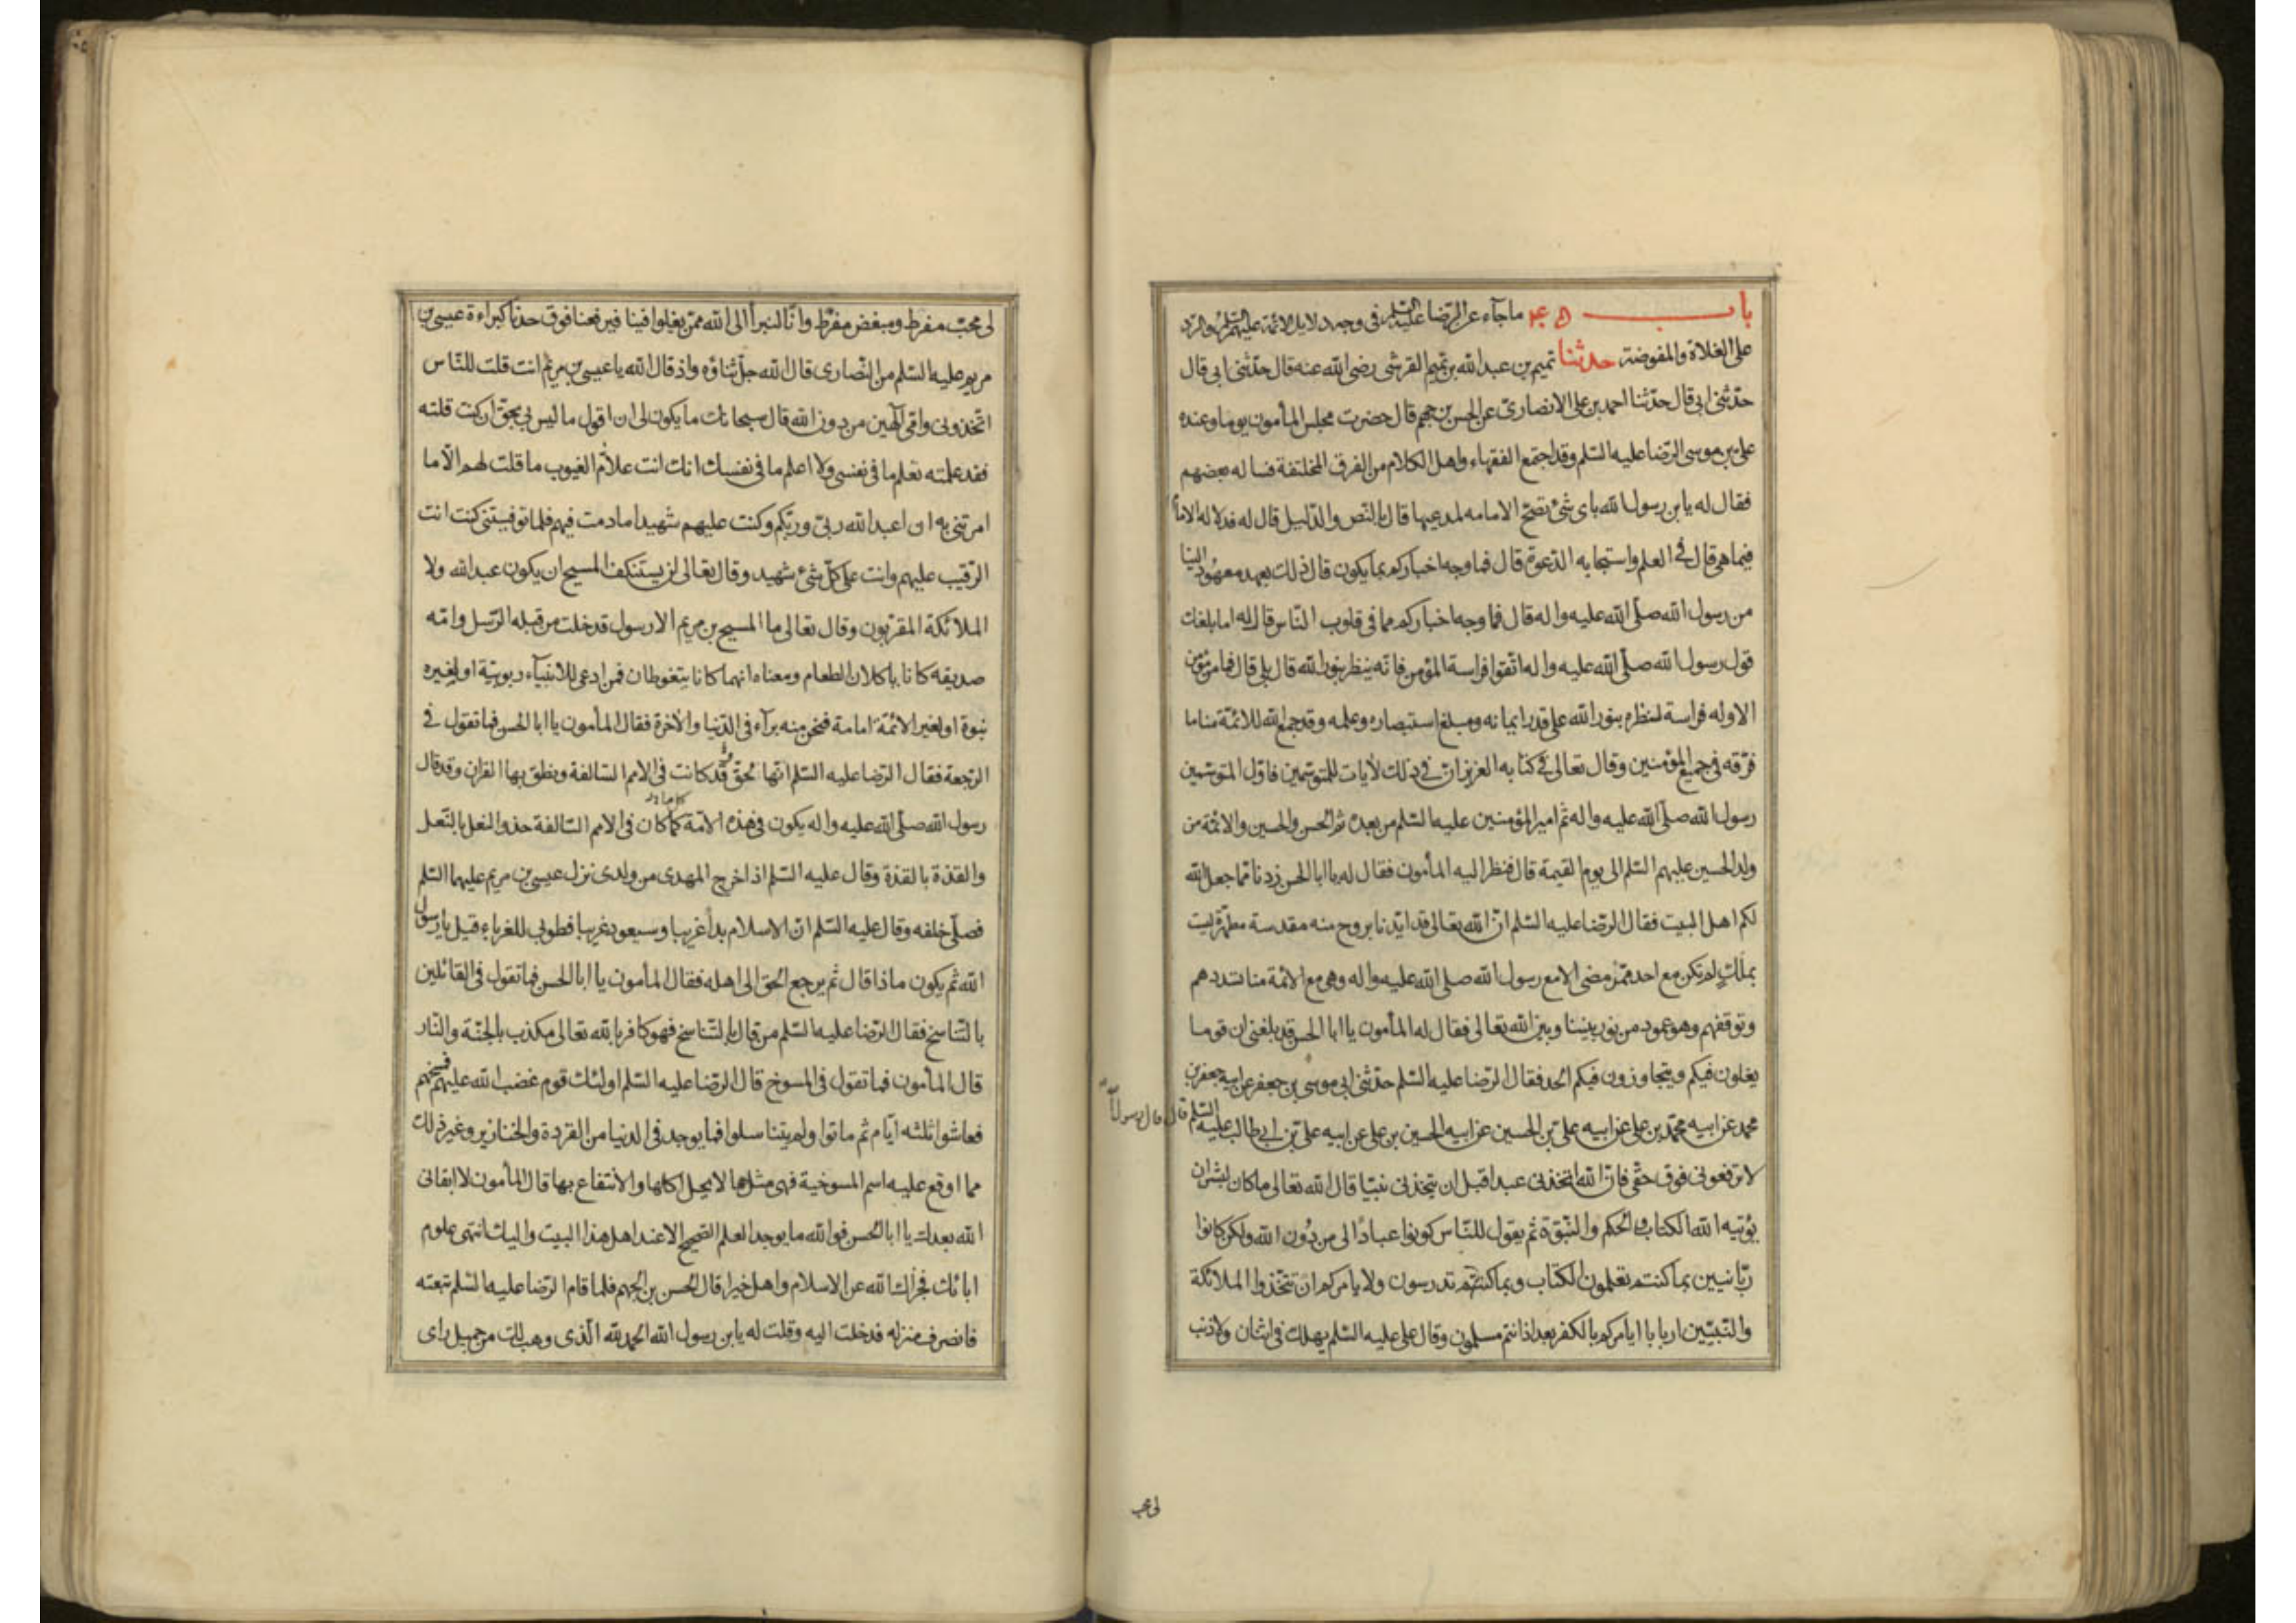 باب ما جاء عن الرضا عليه السلم فى وجه دلايل الائمة عليهم السلم والرد
على الغلاة والمفوضة حدثنا تميم بن عبد الله بن تميم القرشى رضى الله عنه قال حدثنى ابى قال
حدثنى ابى قال حدثنا احمد بن على الانصارى عن الحسن بن جهم قال حضرت مجلس المأمون يوما وعنده
على بن موسى الرضا عليه السلم وقد اجتمع الفقهاء واهل الكلام من الفرق المختلفة فساله بعضهم
فقال له يا بن رسول الله باى شئ تصح الامامه لمدعيها قال بالنص والدليل قال له فدلاله الاما
فيما هى قال فى العلم واستجابه الدعوة قال فما وجه اخباركم بما يكون قال ذلك بعهد معهود الينا
من رسول الله صلى الله عليه واله قال فما وجه اخباركم مما فى قلوب الناس قال له اما بلغك
قول رسول الله صلى الله عليه واله اتقوا فراسة المؤمن فانه ينظر بنور الله قال بلى قال فما من مؤمن
الا وله فراسة لنظره بنور الله على قدر ايمانه ومبلغ استبصاره وعلمه وقد جمع الله للائمة منا ما
فرقه فى جميع المؤمنين وقال تعالى فى كتابه العزيز ان فى ذلك لآيات للمتوسمين فاول المتوسمين
رسول الله صلى الله عليه واله ثم امير المؤمنين عليه السلم من بعده ثم الحسن والحسين والائمة من
ولد الحسين عليهم السلم الى يوم القيمة قال فنظر اليه المأمون فقال له يا ابا الحسن زدنا مما جعل الله
لكم اهل البيت فقال الرضا عليه السلم ان الله تعالى قد ايدنا بروح منه مقدسة مطهرة ليست
بملك لم تكن مع احد ممن مضى الا مع رسول الله صلى الله عليه واله وهى مع الائمة منا تسددهم
وتوفقهم وهو عمود من نور بيننا وبين الله تعالى فقال له المأمون يا ابا الحسن قد بلغنى ان قوما
يغلون فيكم ويتجاوزون فيكم الحد فقال الرضا عليه السلم حدثنى ابى موسى بن جعفر عن ابيه جعفر بن
محمد عن ابيه محمد بن على عن ابيه على بن الحسين عن ابيه الحسين بن على عن ابيه على بن ابى طالب عليه السلم قال قال رسول
لا ترفعونى فوق حقى فان الله اتخذنى عبدا قبل ان يتخذنى نبيا قال الله تعالى ما كان لبشر ان
يؤتيه الله الكتاب والحكم والنبوة ثم يقول للناس كونوا عبادا لى من دون الله ولكن كانوا
ربانيين بما كنتم تعلمون الكتاب وبما كنتم تدرسون ولا يامركم ان تتخذوا الملائكة
والنبيين اربابا ايامركم بالكفر بعد اذ انتم مسلمون وقال على عليه السلم يهلك فى اثنان ولا ذنب
لى محب
لى محب مفرط ومبغض مفرط وانا لنبرأ الى الله ممن يغلوا فينا فيرفعنا فوق حدنا كبراءة عيسى بن
مريم عليه السلم من النصارى قال الله جل ثناؤه واذ قال الله يا عيسى بن مريم انت قلت للناس
اتخذونى وامى الهين من دون الله قال سبحانك ما يكون لى ان اقول ما ليس لى بحق ان كنت قلته
فقد علمته تعلم ما فى نفسى ولا اعلم ما فى نفسك انك انت علام الغيوب ما قلت لهم الا ما
امرتنى به ان اعبد الله ربى وربكم وكنت عليهم شهيدا ما دمت فيهم فلما توفيتنى كنت انت
الرقيب عليهم وانت على كل شئ شهيد وقال تعالى لن يستنكف المسيح ان يكون عبد الله ولا
الملائكة المقربون وقال تعالى ما المسيح بن مريم الا رسول قد خلت من قبله الرسل وامه
صديقه كانا ياكلان الطعام ومعناه انهما كانا يتغوطان فمن ادعى للانبياء ربوبية او لغيره
نبوة او لغير الائمة امامة فنحن منه براء فى الدنيا والاخرة فقال المأمون يا ابا الحسن فما تقول فى
الرجعة فقال الرضا عليه السلم انها لحق قد كانت فى الامم السالفة ونطق بها القران وقد قال
رسول الله صلى الله عليه واله يكون فى هذه الامة كما كان فى الامم السالفة حذو النعل بالنعل
والقذة بالقذة وقال عليه السلم اذا خرج المهدى من ولدى نزل عيسى بن مريم عليهما السلم
فصلى خلفه وقال عليه السلم ان الاسلام بدأ غريبا وسيعود غريبا فطوبى للغرباء قيل يا رسول
الله ثم يكون ماذا قال ثم يرجع الحق الى اهله فقال المأمون يا ابا الحسن فما تقول فى القائلين
بالتناسخ فقال الرضا عليه السلم من قال بالتناسخ فهو كافر بالله تعالى مكذب بالجنة والنار
قال المأمون فما تقول فى المسوخ قال الرضا عليه السلم اولئك قوم غضب الله عليهم فمسخهم
فعاشوا ثلثه ايام ثم ماتوا ولم يتناسلوا فما يوجد فى الدنيا من القردة والخنازير وغير ذلك
مما اوقع عليه اسم المسوخية فهى مثلها لا يحل اكلها والانتفاع بها قال المأمون لا ابقانى
الله بعدك يا ابا الحسن فوالله ما يوجد العلم الصحيح الا عند اهل هذا البيت واليك انتهى علوم
ابائك فجزاك الله عن الاسلام واهله خيرا قال الحسن بن الجهم فلما قام الرضا عليه السلم تبعته
فانصرف منزله فدخلت اليه وقلت له يا بن رسول الله الحمد لله الذى وهب لك من جميل راى